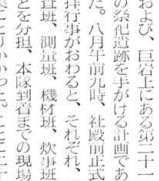 および、巨岩上にある第二十一
の祭祀遺跡を手がける計画であ
た。八月午前九時、社殿前正式
拝行事がおわると、それぞれ、
査班、測量班、機材班、炊事班
とを分担、本隊到着までの現場